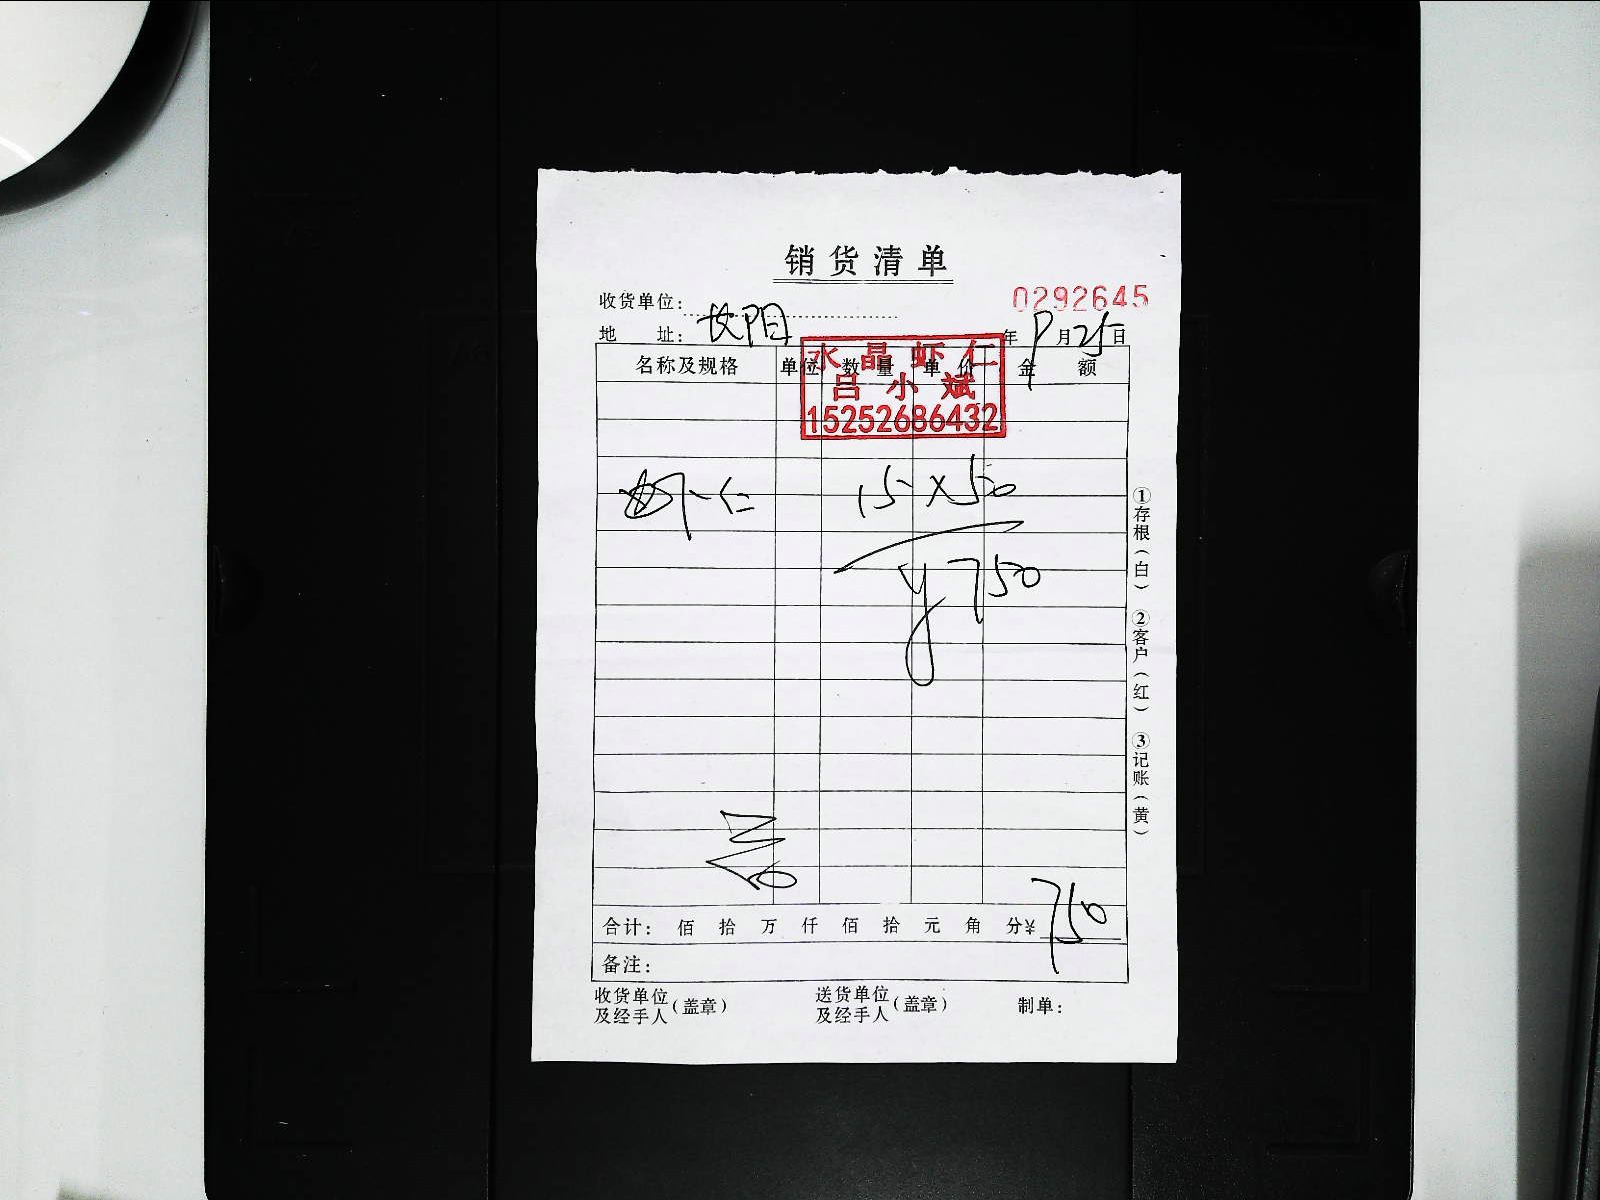 销货清单
0292645
收货单位:
地 址: 年 9 月 25 日
水晶虾仁
吕小斌
15252686432
名称及规格 单位 数量 单价 金额
虾仁 15×50
¥750
合计: 佰 拾 万 仟 佰 拾 元 角 分¥ 750
备注:
收货单位及经手人(盖章) 送货单位及经手人(盖章) 制单:
①存根(白) ②客户(红) ③记账(黄)